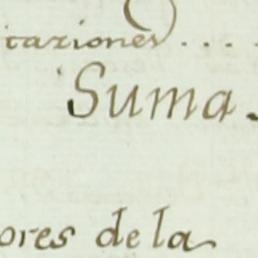 taziones....
Suma.
ores de la